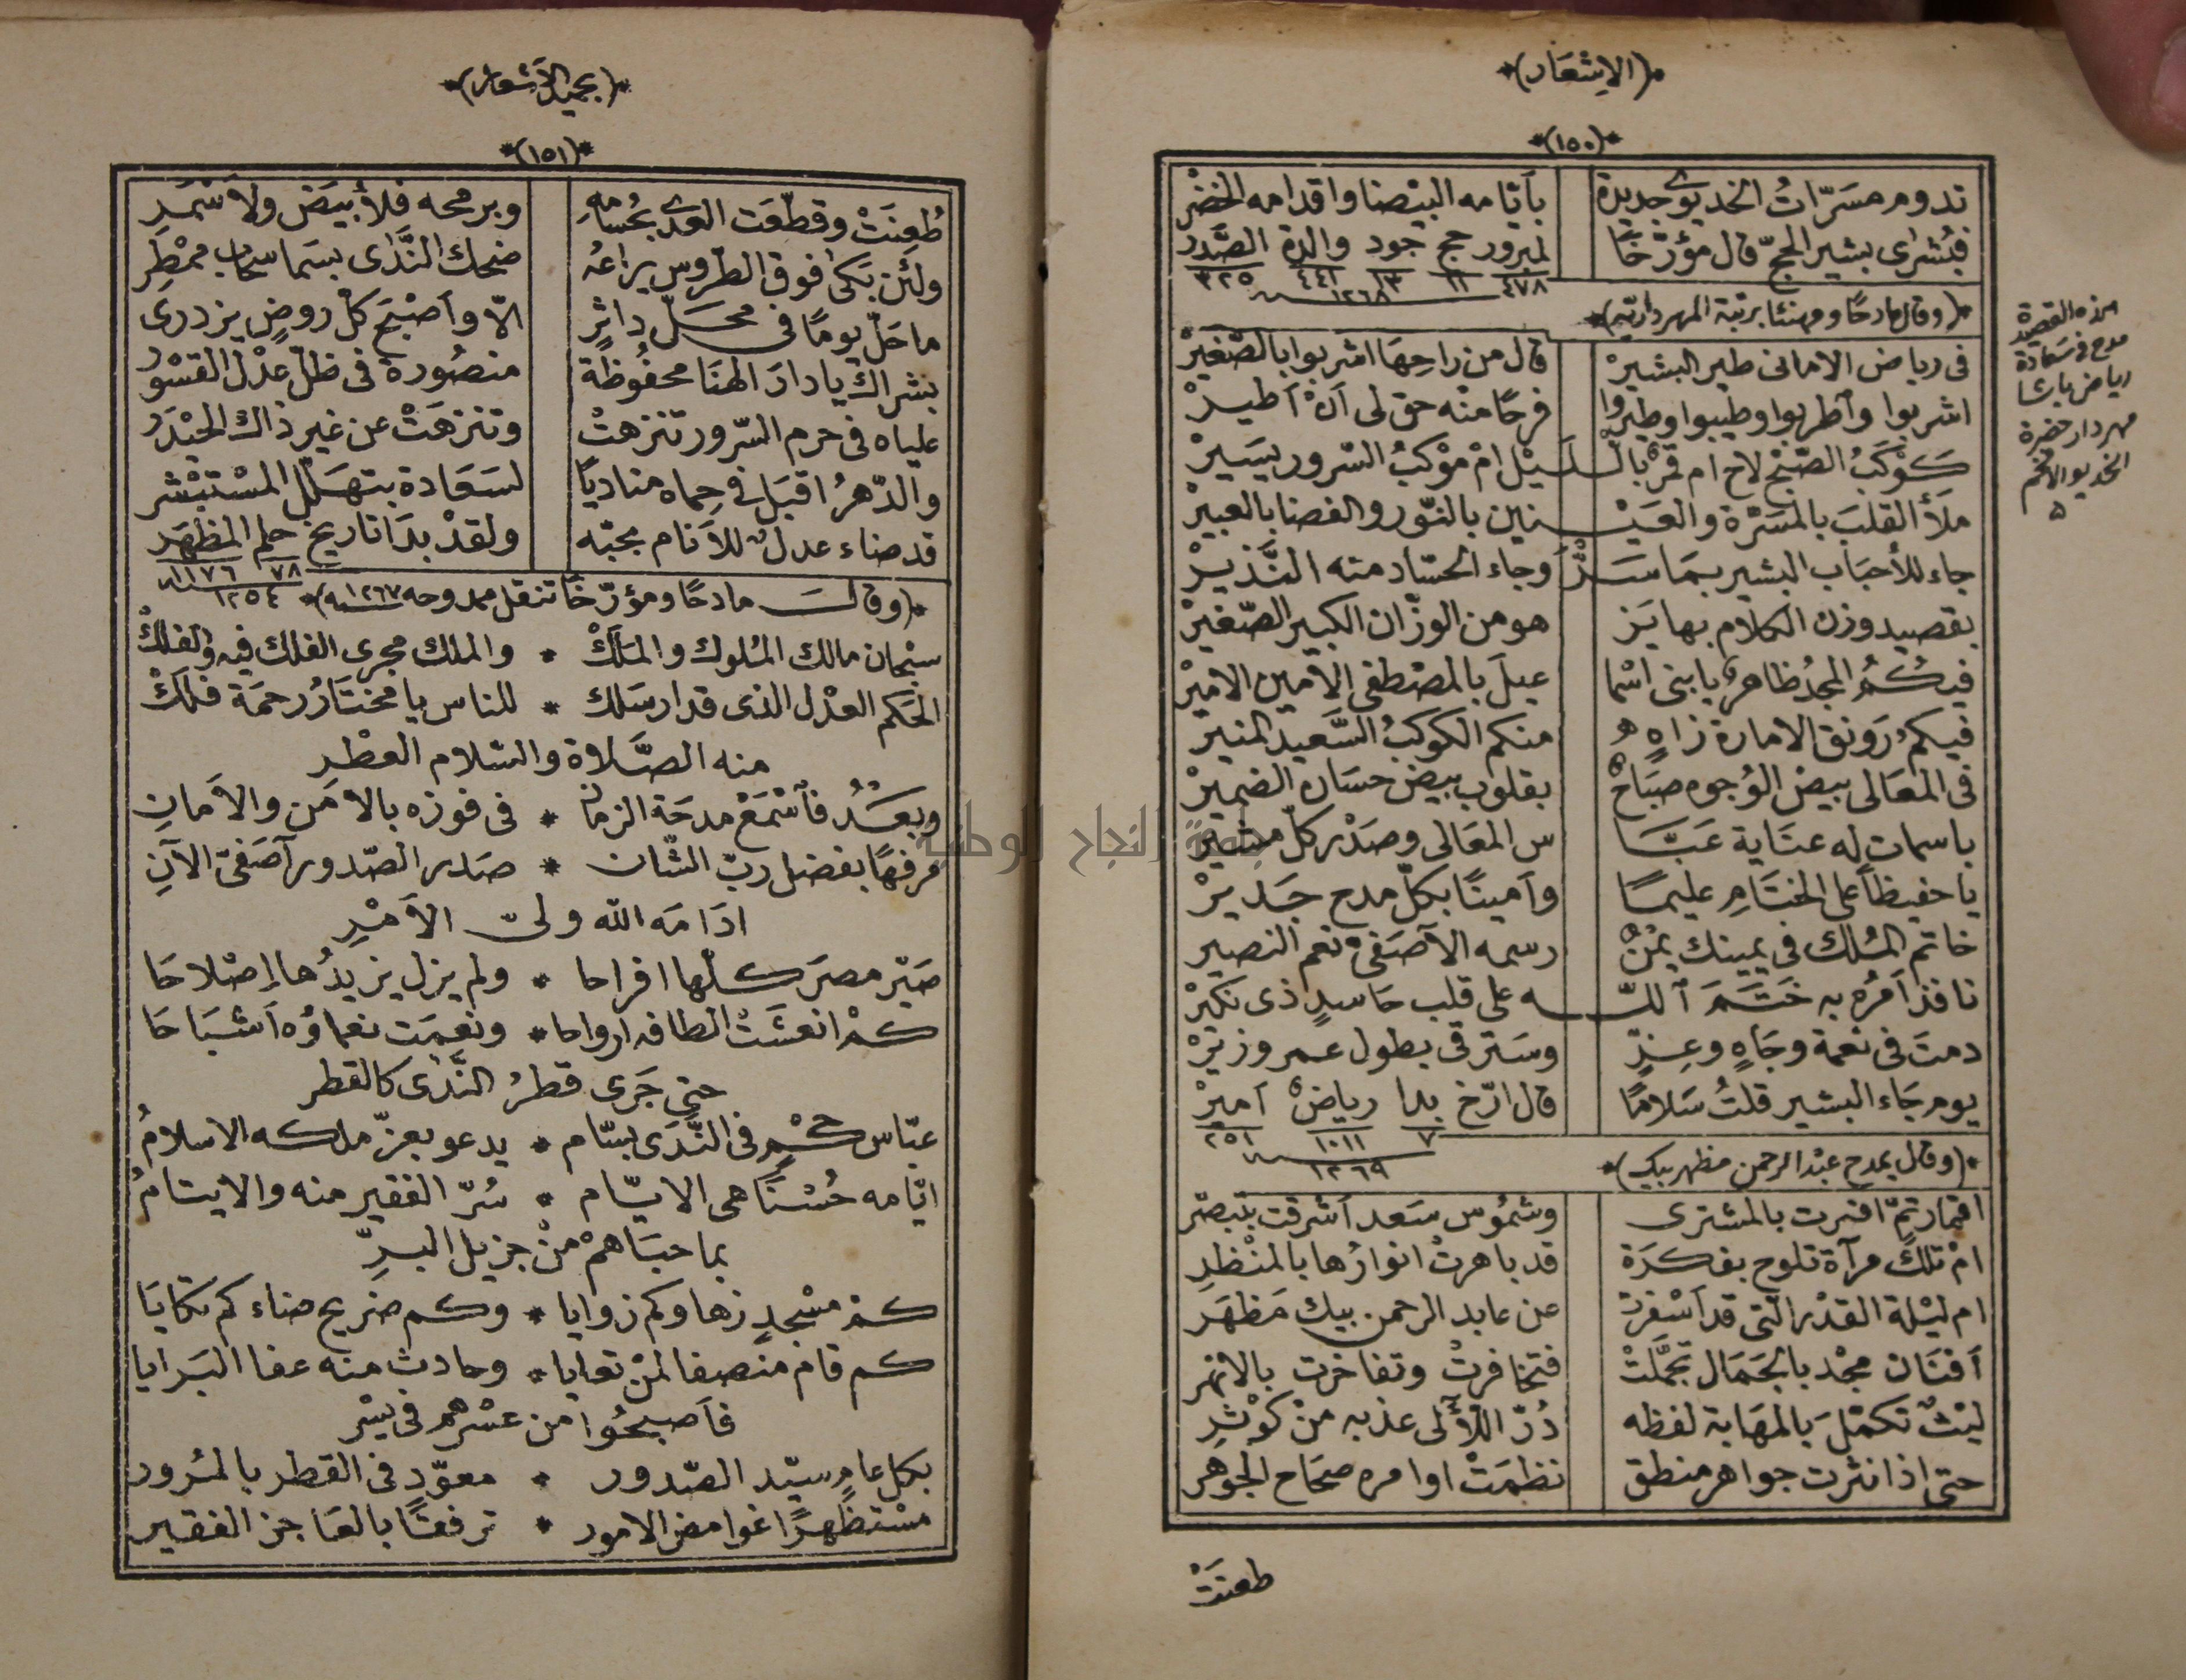 (الإشعار)
(١٥٠)
تدوم مسرّات الخديوي جديدة بأيّامه البيضا واقدامه الخضر
فبشرى بشير الحجّ قال مؤرّخًا لمبرور حج جود والدة الصّدر
٤٧٨ ١١ ١٣ ٤٤١ ٣٢٥
١٢٦٨
(وقال مادحًا ومهنئا برتبة المهرداريّة)
فى رياض الامانى طير البشيرْ قال من راحِهَا اشربوا بالصّغيرْ
اشربوا وأطربوا وطيبوا وطيروا فرحًا منْه حق لى أنْ أطيرْ
كوكبُ الصّبْح لاح ام قمرٌ بالليْل امْ موْكبُ السّرور يسَيرْ
ملأ القلبَ بالمسَرّة والعَيْنين بالنّور والفضا بالعبيرْ
جاء للأحبَاب البشير بمَا سَرَّ وجاء الحسّاد منه النَّذيرْ
بقصيد وزن الكلام بها يَز هو من الوزّان الكبير الصّغيرْ
فيكُمُ المجدُ ظاهرٌ يا بنى اسْما عيلَ بالمصْطفى الأمين الاميرْ
فيكمُ رَونق الامارة زاهٍ و منكم الكوكبُ السَّعيد المنيرْ
فى المعَالى بيضُ الوُجوه صبَاحٌ بقلوب بيض حسَان الضميرْ
باسمات له عناية عَبّا س المعَالى وصَدْر كلّ مشيرْ
يا حفيظاً على الختَامِ عليمًا وأمينًا بكلّ مدح جَديرْ
خاتم المُلك فى يمينك يمْنٌ رسمه الآصَفىّ نعم النصير
نافذ أمْرُه به خَتَمَ اللّه على قلب حَاسدٍ ذى نكيرْ
دمتَ فى نعْمة وجَاهٍ وعِزٍّ وسَترقى بطول عمر وزيرْ
يوم جَاء البشير قلتُ سَلامًا قال ارّخ بدا رياضٌ أميرْ
٧ ١٠١١ ٢٥١
١٢٦٩
(وقال يمدح عبْد الرحمن مظهر بيك)
اقمار تمّ اقبرت بالمشترى وشمُوس سَعد أشرقت بتبصّر
امْ تلك مرآة تلوح بفكرَة قد باهرتْ انوارُها بالمنْظرِ
ام ليْلة القدْر الّتى قد أسْفرتْ عن عابد الرحمن بيك مَظهَر
أفنَان مجْد بالجَمَال تجمَّلَتْ فتخافرتْ وتفاخرت بالانهر
ليْثٌ تكمّلَ بالمهَابة لفظه دُرّ اللآلى عذبه منْ كوْثرِ
حتى اذا نثرت جواهر منطق نظمَتْ اوامره صحَاح الجوْهر
طعنَتْ
هذه القصيدة
مدح فى سَعادة
رياض باشا
مهردار حضرة
الخديو الافخم
(بحميد الأشعار)
(١٥١)
طُعِنَتْ وقطّعَت العدى بحُسَامهِ وبرمحه فلأبيَض ولأسْمَرِ
ولئن بَكى فوق الطّروس يراعُه ضحك النَّدَى بسَما سحاب ممْطِرِ
ما حَلّ يومًا فى محَلّ داثرٍ الّا وأصْبَح كلّ روضٍ يزدرى
بشراك يا دارَ الهنَا محفُوظة منصُورة فى ظلّ عدْل القسْوَرِ
علياه فى حرم السّرور تنزهتْ وتنزهَتْ عن غير ذاك الحيْدَرِ
والدّهرُ اقبَل فى حِماه مناديًا لسَعَادة بتهَلّل المسْتبْشر
قد ضاء عدلٌ للأنام بحبّه ولقدْ بدَا تاريخ حلم المظهَر
٧٨ ١١٧٦
١٢٥٤
(وقال مادحًا ومؤرّخًا تنقل ممدوحه ١٢٦٧)
سبْحان مالك المُلوك والمَلَكْ * والملك مجرى الفلك فيه والفلكْ
الحكم العدْل الذى قد ارسَلك * للناس يا مختَارُ رحمَة فلكْ
منه الصّلاة والسّلام العطْرِ
وبعْدُ فأسْتمعْ مدحَة الزمان * فى فوزه بالامَن والأمانِ
مرفهًا بفضل ربّ الشّان * صَدر الصّدور آصَفىّ الآنِ
ادَامَه الله ولىّ الأمْرِ
صَيّر مصرَ كلّها افراحا * ولم يزل يزيدُها إصْلاحَا
كمْ انعشَتْ الطافه ارواحا * ونعِمَت نعماؤه أشْبَاحَا
حتى جَرى قطرُ النَّدَى كالقطر
عبّاس حُكْمٍ فى النَّدَى بسّام * يدعو بعزّ ملكه الاسلامُ
ايّامه حُسْنًا هى الايّام * سُرّ الفقير منه والايتامُ
بما حبَاهمْ منْ جزيل البرِّ
كم مسْجدٍ زها وكم زوايا * وكم ضريح ضاء كم تكايَا
كم قام منصفا لمنْ تعايا * وحادث منه عفا البَرايا
فأصبحُوا من عسْرهم فى يسْرِ
بكل عامٍ سيّد الصّدور * معوّد فى القطر بالمُرور
مسْتظْهرًا غوامض الامور * ترفقًا بالعَاجز الفقير
جامعة النجاح الوطنية